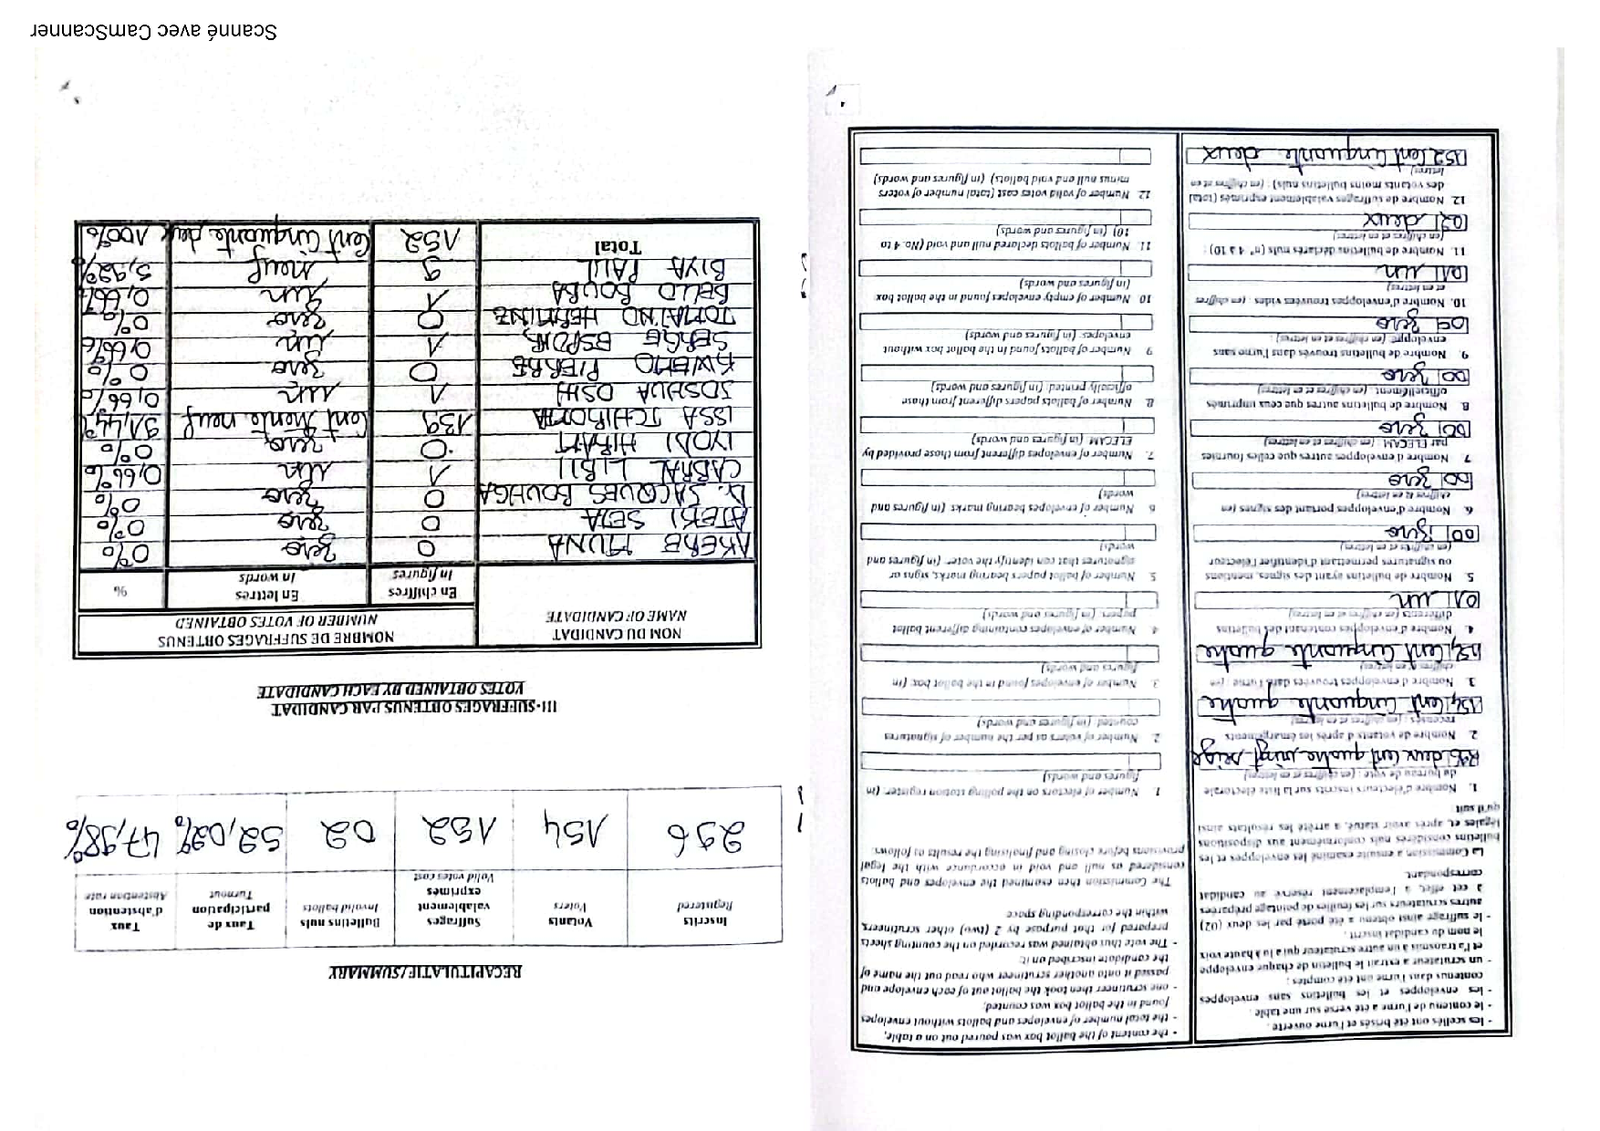 - les scellés ont été brisés et l'urne ouverte ;
- le contenu de l'urne a été versé sur une table ;
- les enveloppes et les bulletins sans enveloppes
contenus dans l'urne ont été comptés ;
- un scrutateur a extrait le bulletin de chaque enveloppe
et l'a transmis à un autre scrutateur qui a lu à haute voix
le nom du candidat inscrit ;
- le suffrage ainsi obtenu a été porté par les deux (02)
autres scrutateurs sur les feuilles de pointage préparées
à cet effet, à l'emplacement réservé au candidat
correspondant.
La Commission a ensuite examiné les enveloppes et les
bulletins considérés nuls conformément aux dispositions
légales et, après avoir statué, a arrêté les résultats ainsi
qu'il suit :
1. Nombre d'électeurs inscrits sur la liste électorale
du bureau de vote : (en chiffres et en lettres)
296 deux cent quatre vingt seize
2. Nombre de votants d'après les émargements
recensés : (en chiffres et en lettres)
154 Cent Cinquante quatre
3. Nombre d'enveloppes trouvées dans l'urne : (en
chiffres et en lettres)
154 Cent Cinquante quatre
4. Nombre d'enveloppes contenant des bulletins
différents (en chiffres et en lettres)
01 un
5. Nombre de bulletins ayant des signes, mentions
ou signatures permettant d'identifier l'électeur
(en chiffres et en lettres)
00 zero
6. Nombre d'enveloppes portant des signes (en
chiffres et en lettres)
00 zero
7. Nombre d'enveloppes autres que celles fournies
par ELECAM : (en chiffres et en lettres)
00 zero
8. Nombre de bulletins autres que ceux imprimés
officiellement : (en chiffres et en lettres)
00 zero
9. Nombre de bulletins trouvés dans l'urne sans
enveloppe (en chiffres et en lettres) :
00 zero
10. Nombre d'enveloppes trouvées vides : (en chiffres
et en lettres)
01 un
11. Nombre de bulletins déclarés nuls (n° 4 à 10) :
(en chiffres et en lettres)
02 deux
12. Nombre de suffrages valablement exprimés (total
des votants moins bulletins nuls) : (en chiffres et en
lettres)
152 Cent Cinquante deux
- the content of the ballot box was poured out on a table,
- the total number of envelopes and ballots without envelopes
found in the ballot box was counted;
- one scrutineer then took the ballot out of each envelope and
passed it onto another scrutineer who read out the name of
the candidate inscribed on it;
- The vote thus obtained was recorded on the counting sheets
prepared for that purpose by 2 (two) other scrutineers,
within the corresponding space
The Commission then examined the envelopes and ballots
considered as null and void in accordance with the legal
provisions before closing and finalising the results as follows:
1 Number of electors on the polling station register: (in
figures and words)
2 Number of voters as per the number of signatures
counted: (in figures and words)
3. Number of envelopes found in the ballot box: (in
figures and words)
4 Number of envelopes containing different ballot
papers: (in figures and words)
5. Number of ballot papers bearing marks, signs or
signatures that can identify the voter: (in figures and
words)
6 Number of envelopes bearing marks (in figures and
words)
7. Number of envelopes different from those provided by
ELECAM (in figures and words)
8. Number of ballots papers different from those
officially printed: (in figures and words)
9 Number of ballots found in the ballot box without
envelopes: (in figures and words)
10 Number of empty envelopes found in the ballot box
(in figures and words)
11. Number of ballots declared null and void (No. 4 to
10) (in figures and words)
12. Number of valid votes cast (total number of voters
minus null and void ballots) (in figures and words)
RECAPITULATIF/SUMMARY
Inscrits Registered | Votants Voters | Suffrages valablement exprimés Valid votes cast | Bulletins nuls Invalid ballots | Taux de participation Turnout | Taux d'abstention Abstention rate
296 154 152 02 52,02% 47,98%
III-SUFFRAGES OBTENUS PAR CANDIDAT
VOTES OBTAINED BY EACH CANDIDATE
NOM DU CANDIDAT NAME OF CANDIDATE | NOMBRE DE SUFFRAGES OBTENUS NUMBER OF VOTES OBTAINED
En chiffres In figures | En lettres In words | %
AKERE MUNA 0 zero 0%
ATEKI SETA 0 zero 0%
B. JACQUES BOUHGA 0 zero 0%
CABRAL LIBII 1 un 0,66%
IYODI HIRAM 0 zero 0%
ISSA TCHIROMA 139 Cent trente neuf 91,44%
JOSHUA OSHI 1 un 0,66%
KWEMO PIERRE 0 zero 0%
SERGE ESPOIR 1 un 0,66%
TOMAINO HERMINE 0 zero 0%
BELLO BOUBA 1 un 0,66%
BIYA PAUL 9 neuf 5,92%
Total 152 Cent Cinquante deux 100%
Scanné avec CamScanner